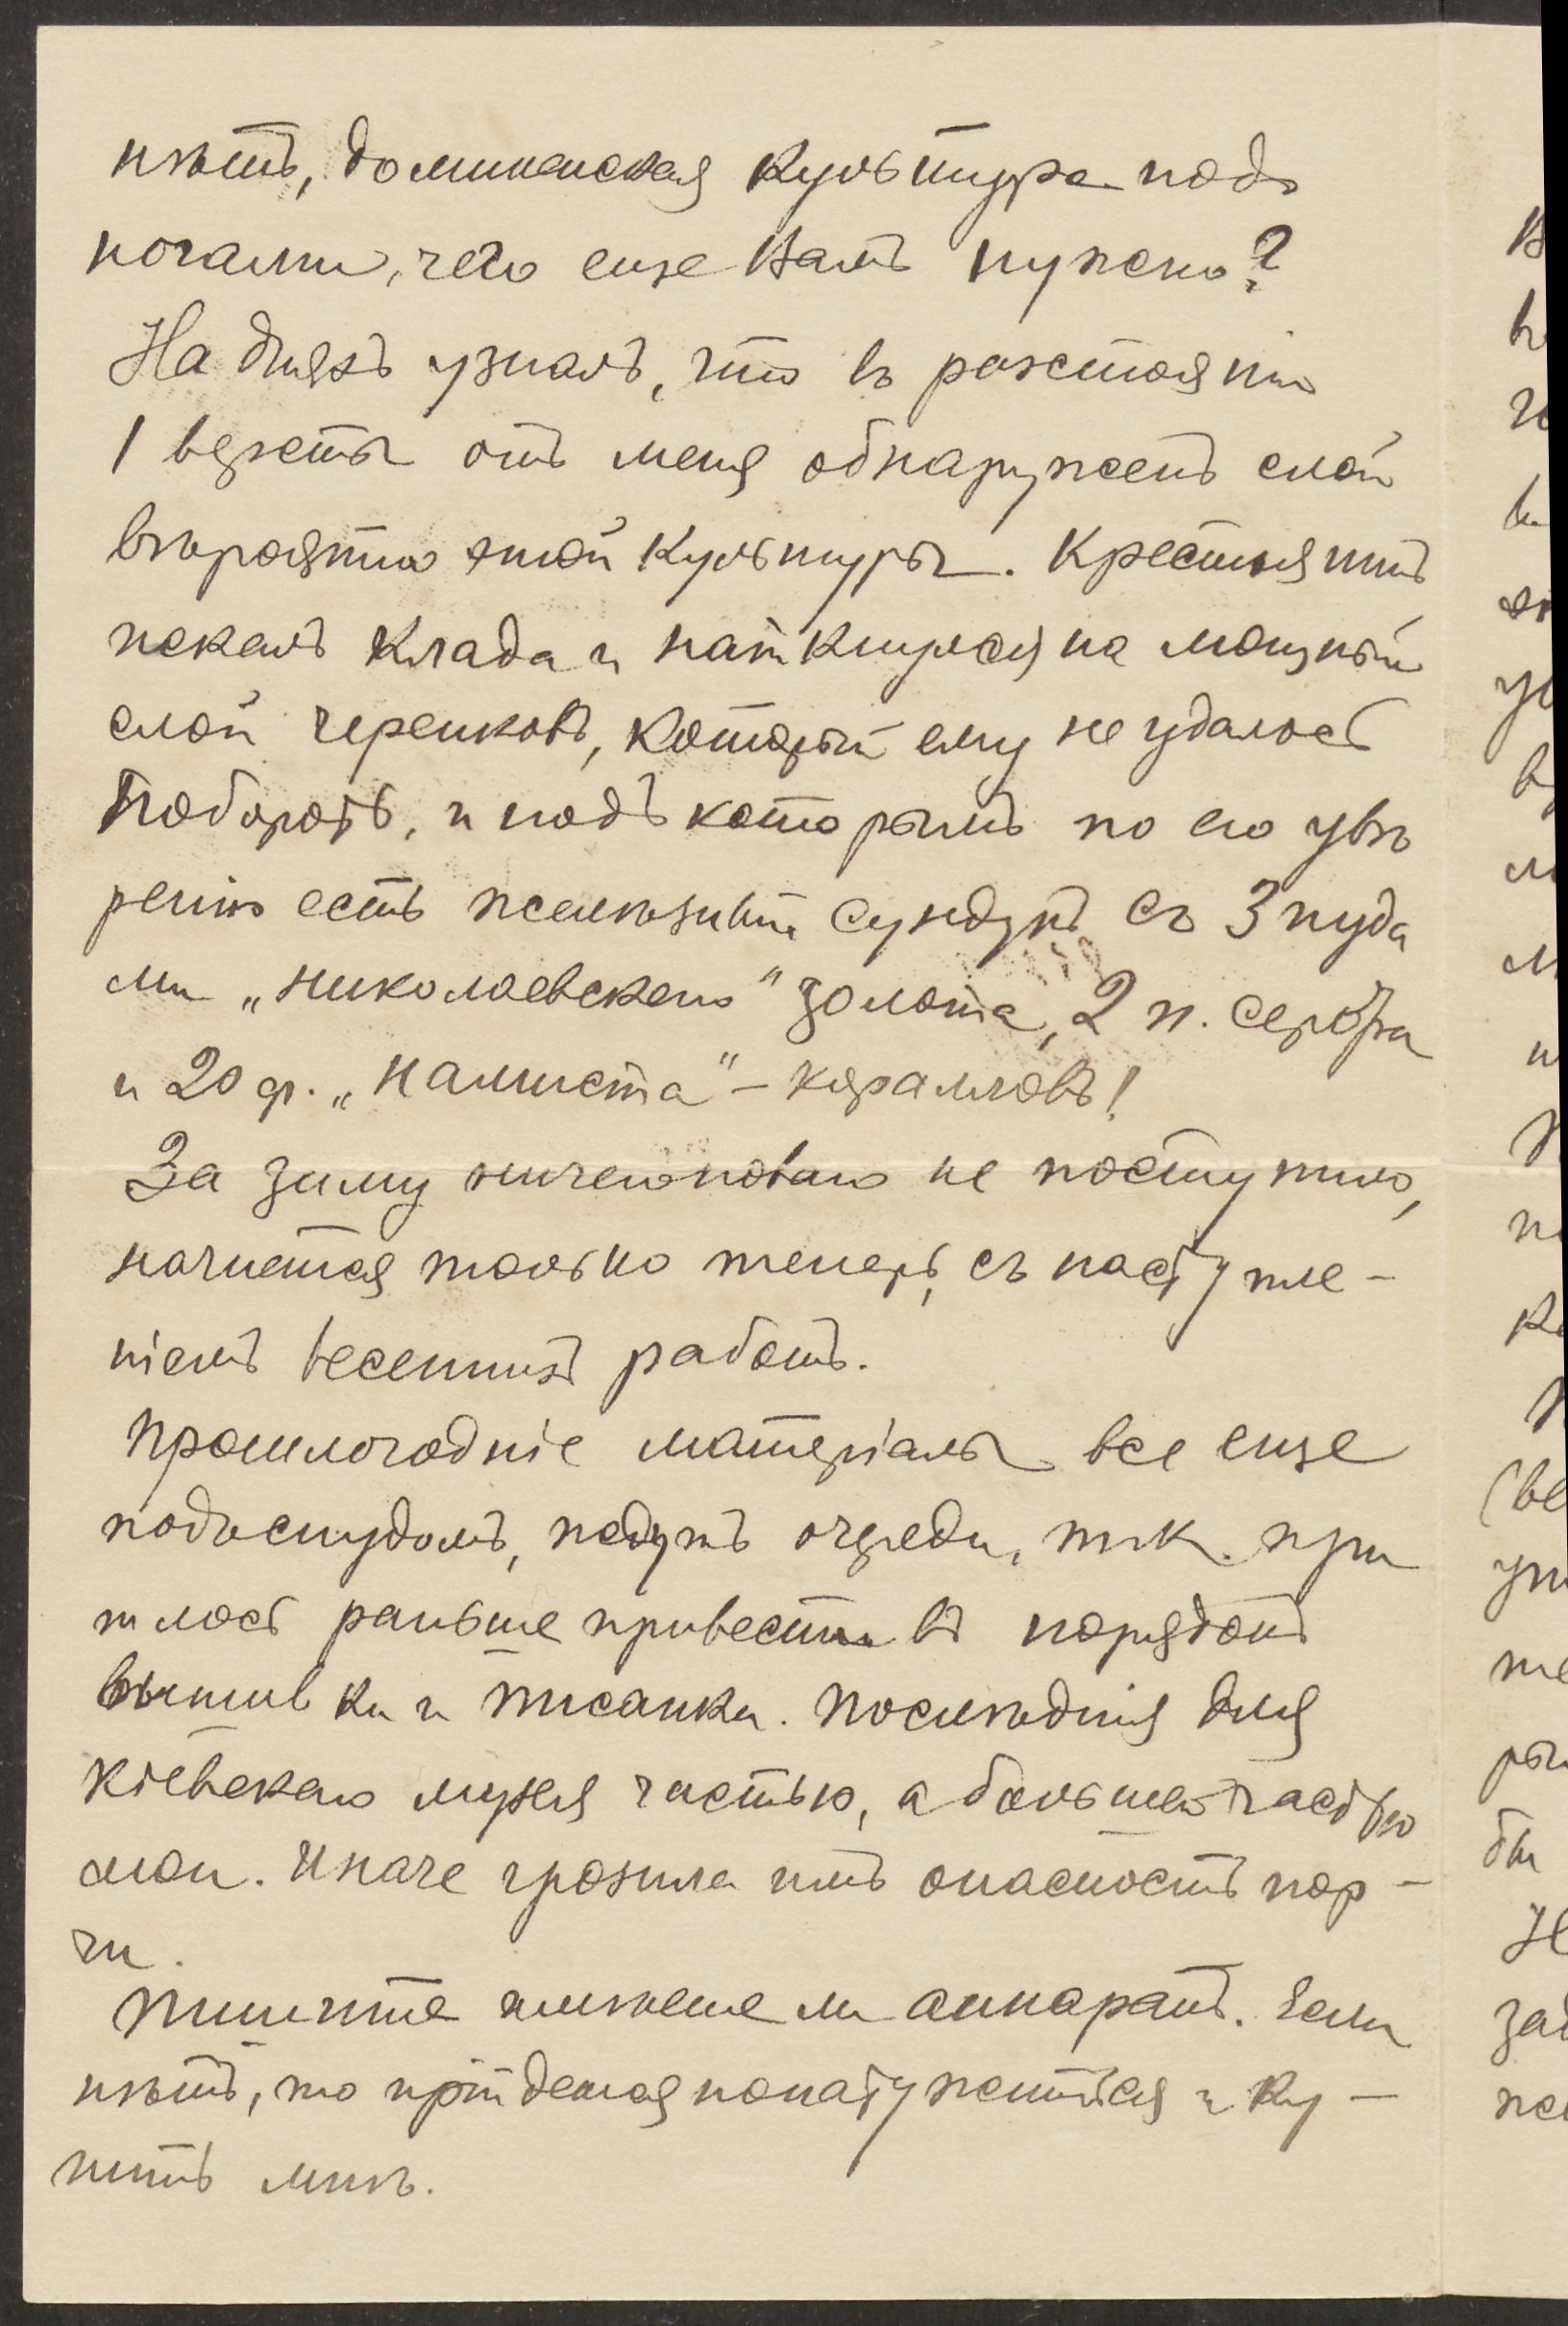 нѣтъ, домикенская культура подъ
ногами, чего еще Вамъ нужно?
На дняхъ узналъ, что въ разстояніи
1 версты отъ меня обнаруженъ слой
вѣроятно этой культуры. Крестьянинъ
искалъ клада и наткнулся на мощный
слой черепковъ, который ему не удалось
побороть, и подъ которымъ по его увѣ
ренію есть желѣзный сундукъ съ 3 пуда
ми „николаевскаго" золота, 2 п. серебра
и 20 ф. „намиста" – коралловъ!
За зиму ничего новаго не поступило,
начнется только теперь, съ наступле-
ніемъ весеннихъ работъ.
Прошлогодніе матеріалы все еще
подъ спудомъ, ждутъ очереди, т.к. при
шлось раньше привести въ порядокъ
вышивки и писанки. Послѣднія для
Кіевскаго музея частью, а большею частью
мои. Иначе грозила имъ опасность пор-
чи.
Пишите имѣете ли аппаратъ. Если
нѣтъ, то прійдется понатужиться и ку-
пить мнѣ.